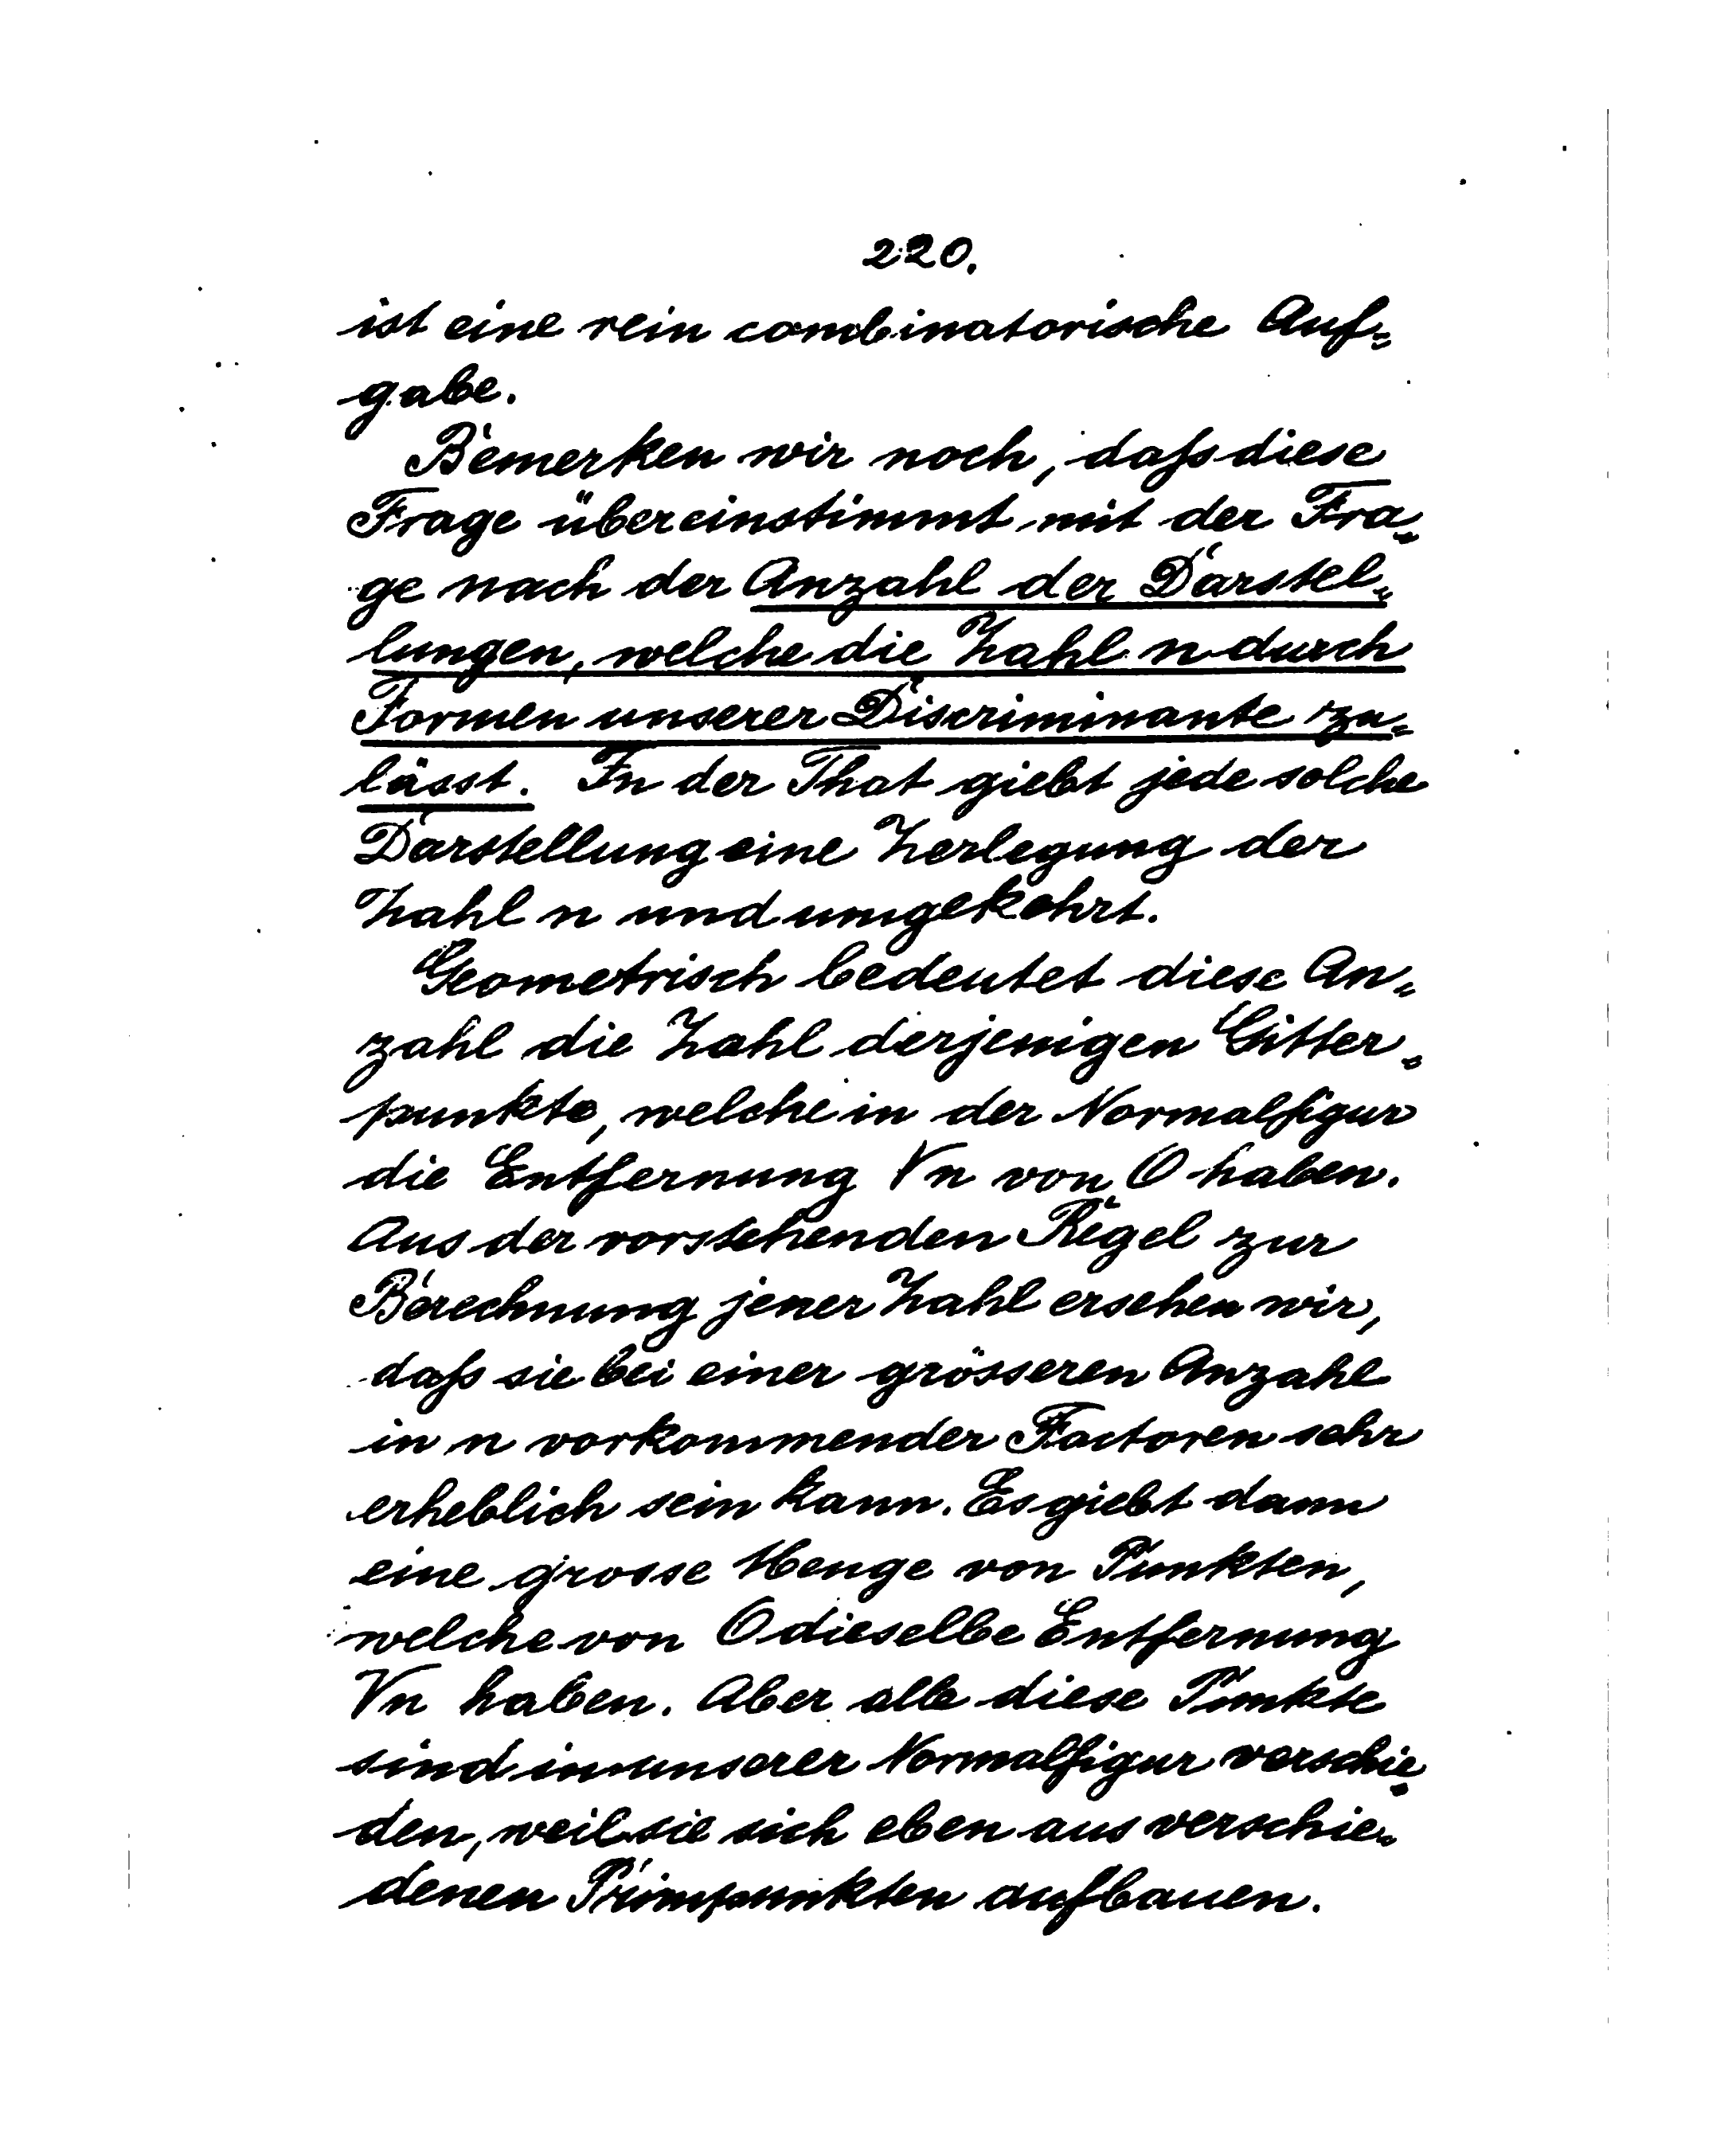 220.
ist eine rein combinatorische Auf-
gabe.
Bemerken wir noch, daß diese
Frage übereinstimmt mit der Fra-
ge nach der Anzahl der Darstel-
lungen, welche die Zahl n durch
Formen unserer Discriminante zu-
lässt. In der That giebt jede solche
Darstellung eine Zerlegung der
Zahl n und umgekehrt.
Geometrisch bedeutet diese An-
zahl die Zahl derjenigen Gitter-
punkte, welche in der Normalfigur
die Entfernung √n von O haben.
Aus der vorstehenden Regel zur
Berechnung jener Zahl ersehen wir,
daß sie bei einer grösseren Anzahl
in n vorkommender Factoren sehr
erheblich sein kann. Es giebt dann
eine grosse Menge von Punkten,
welche von O dieselbe Entfernung
√n haben. Aber alle diese Punkte
sind in unserer Normalfigur verschie-
den, weil sie sich eben aus verschie-
denen Primpunkten aufbauen.